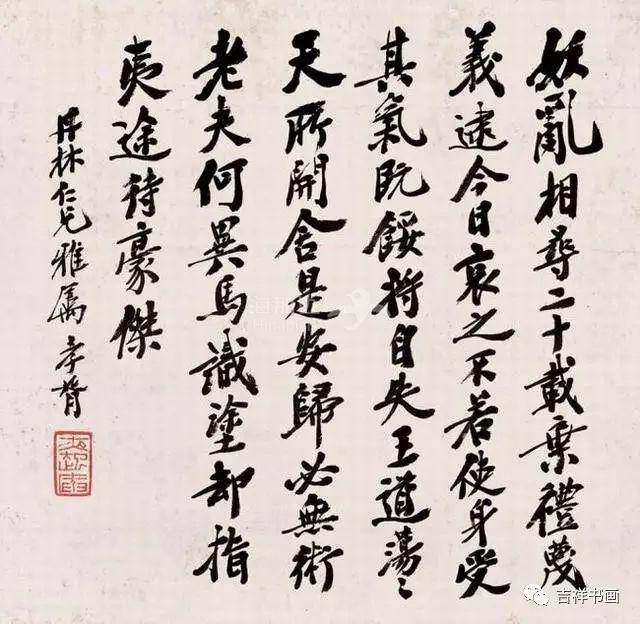 妖亂相尋二十載棄禮蔑
義逮今日哀之不若使身受
其氣既餒將自失王道蕩〻
天所開舍是安歸必無術
老夫何異馬識塗却指
夷途待豪傑
丹林仁兄雅屬 孝胥
吉祥书画